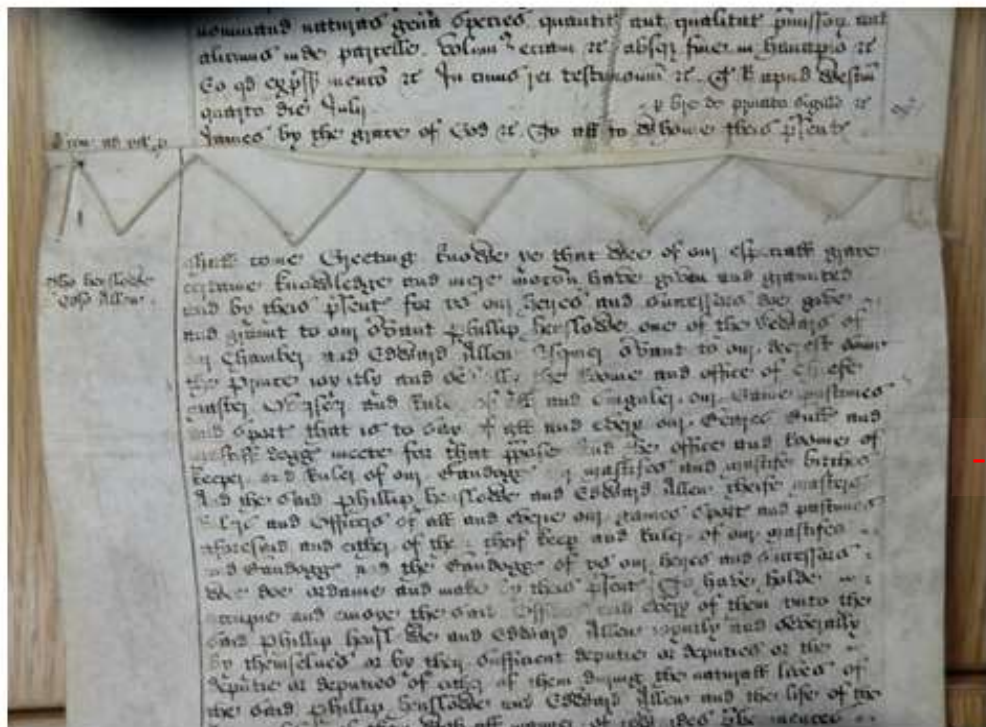 nominand naturas gen'a species quantit aut qualitat p'missor aut
alicuius inde parcelle Volum' eciam &c absq' fine in hanapio &c
Eo qd exp'ss mencio &c In cuius rei testimonium &c T R apud Westm
quarto die Julij
p br'e de privato sigillo &c
James by the grace of God &c To all to whome theis p'sent
shall come Greeting Knowe ye that wee of our esp'iall grace
certaine knowledge and mere mocon have given and graunted
and by theis p'sent for vs our heires and successors doe gyve
and graunt to our s'vant Phillip Henslowe one of the Sewers of
our Chamber and Edward Allen s'vant to our deerest sonne
the Prince ioyntly and the Roome and office of Cheefe
master and Ruler of all and singuler our Game pastimes
and sport that is to say of all and every our Beares Bulls and
mastiff dogg meete for that p'pose And the office and Roome of
keeper and Ruler of our Bandogg mastifes and mastife bitches
And the said Phillip Henslowe and Edward Allen cheife masters
and Officers of all and every our games sport and pastimes
aforesaid and either of the cheif keep and Ruler of our mastifes
and Bandogg and the Bandogg of vs our heires and successors
wee doe ordaine and make by theis p'sent To have holde
occupie and enioye the said Offices and every of them vnto the
said Phillip Henslowe and Edward Allen ioyntly and severally
by themselues or by their sufficient deputie or deputies or the
deputie or deputies of either of them during the naturall lives of
the said Phillip Henslowe and Edward Allen and the life of the
of them with all manner of
Phi Henslowe
Edw Allen